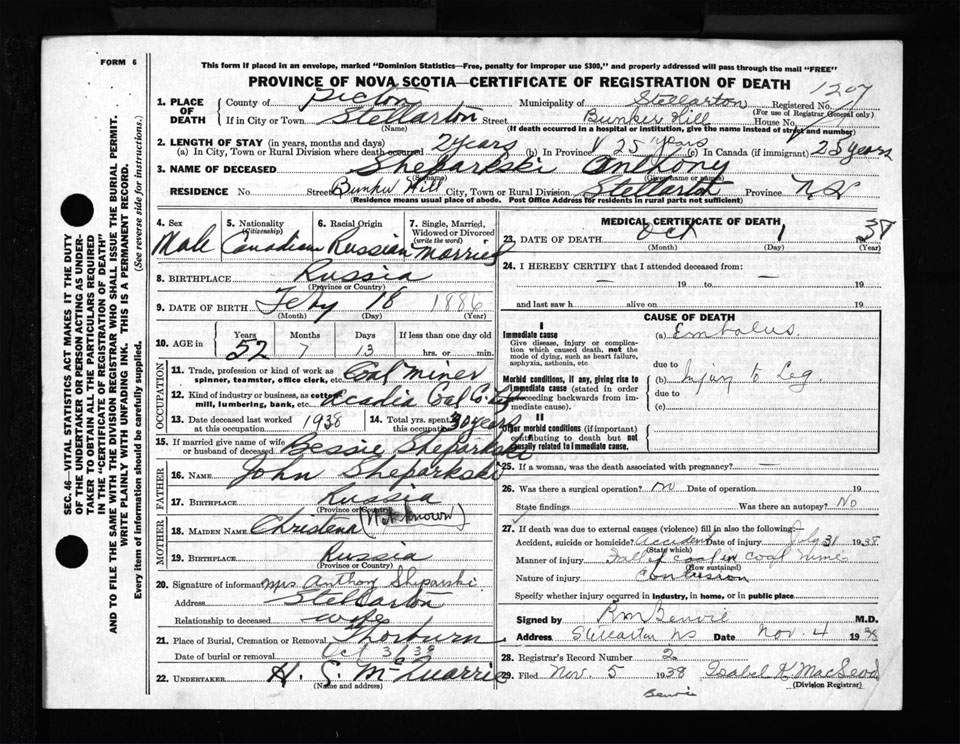 FORM 6
This form if placed in an envelope, marked "Dominion Statistics—Free, penalty for improper use $300," and properly addressed will pass through the mail "FREE"
PROVINCE OF NOVA SCOTIA—CERTIFICATE OF REGISTRATION OF DEATH
1207
1. PLACE OF DEATH County of Pictou Municipality of Stellarton Registered No.
(For use of Registrar General only)
If in City or Town Stellarton Street Bunker Hill House No.
(Name) (If death occurred in a hospital or institution, give the name instead of street and number)
2. LENGTH OF STAY (in years, months and days)
(a) In City, Town or Rural Division where death occurred 2 years (b) In Province 25 years (c) In Canada (if immigrant) 25 years
3. NAME OF DECEASED Sheparkski Anthony
(Surname) (Given name or names)
RESIDENCE No. Street Bunker Hill City, Town or Rural Division Stellarton Province N.S.
(Residence means usual place of abode. Post Office Address for residents in rural parts not sufficient)
SEC. 46—VITAL STATISTICS ACT MAKES IT THE DUTY
OF THE UNDERTAKER OR PERSON ACTING AS UNDER-
TAKER TO OBTAIN ALL THE PARTICULARS REQUIRED
IN THE "CERTIFICATE OF REGISTRATION OF DEATH"
AND TO FILE THE SAME WITH THE DIVISION REGISTRAR WHO SHALL ISSUE THE BURIAL PERMIT.
WRITE PLAINLY WITH UNFADING INK. THIS IS A PERMANENT RECORD.
Every item of information should be carefully supplied. (See reverse side for instructions.)
4. Sex Male
5. Nationality (Citizenship) Canadian
6. Racial Origin Russian
7. Single, Married, Widowed or Divorced (write the word) Married
8. BIRTHPLACE Russia
(Province or Country)
9. DATE OF BIRTH Feby 18 1886
(Month) (Day) (Year)
10. AGE in Years 52 Months 7 Days 13 If less than one day old hrs. or min.
OCCUPATION
11. Trade, profession or kind of work as spinner, teamster, office clerk, etc. Coal miner
12. Kind of industry or business, as cotton mill, lumbering, bank, etc. Acadia Coal Co.
13. Date deceased last worked at this occupation 1938
14. Total yrs. spent in this occupation 30 years
15. If married give name of wife or husband of deceased Bessie Sheparkski
FATHER
16. NAME John Sheparkski
17. BIRTHPLACE Russia
(Province or Country)
MOTHER
18. MAIDEN NAME Christena (Not known)
19. BIRTHPLACE Russia
(Province or Country)
20. Signature of informant Mrs Anthony Sheparski
Address Stellarton
Relationship to deceased wife
21. Place of Burial, Cremation or Removal Thorburn
Date of burial or removal Oct 3/38
22. UNDERTAKER H. S. McQuarrie
(Name and address)
MEDICAL CERTIFICATE OF DEATH
23. DATE OF DEATH Oct 1 1938
(Month) (Day) (Year)
24. I HEREBY CERTIFY that I attended deceased from —
— 19 to — 19
and last saw h alive on — 19
CAUSE OF DEATH
I
Immediate cause (a) Embolus
Give disease, injury or complication which caused death, not the mode of dying, such as heart failure, asphyxia, asthenia, etc
due to
Morbid conditions, if any, giving rise to immediate cause (stated in order proceeding backwards from immediate cause). (b) Injury to Leg.
due to
(c)
II
Other morbid conditions (if important) contributing to death but not causally related to immediate cause.
25. If a woman, was the death associated with pregnancy? —
26. Was there a surgical operation? no Date of operation 19
State findings Was there an autopsy? No
27. If death was due to external causes (violence) fill in also the following:
Accident, suicide or homicide? Accident Date of injury July 31 1938
(State which)
Manner of injury Fall of coal in coal mine
(How sustained)
Nature of injury Contusion
Specify whether injury occurred in industry, in home, or in public place
Signed by R M Benvie M.D.
Address Stellarton NS Date Nov. 4 1938
28. Registrar's Record Number 2
29. Filed Nov. 5 1938 Isabel K MacLeod
(Division Registrar)
Benvie